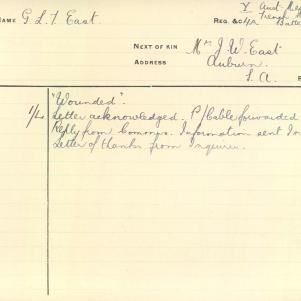 NAME G. L. T. East.
REG. &c
V Aust. Me
Trench M
Batt
NEXT OF KIN Mrs J. W. East
ADDRESS Auburn.
S. A.
"Wounded".
1/4 Letter acknowledged. P/Cable forwarded
Reply from Comorps. Information sent In
Letter of thanks from Inquirer.